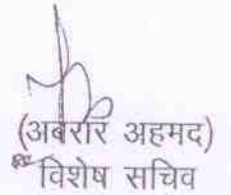 (अबरार अहमद)
विशेष सचिव